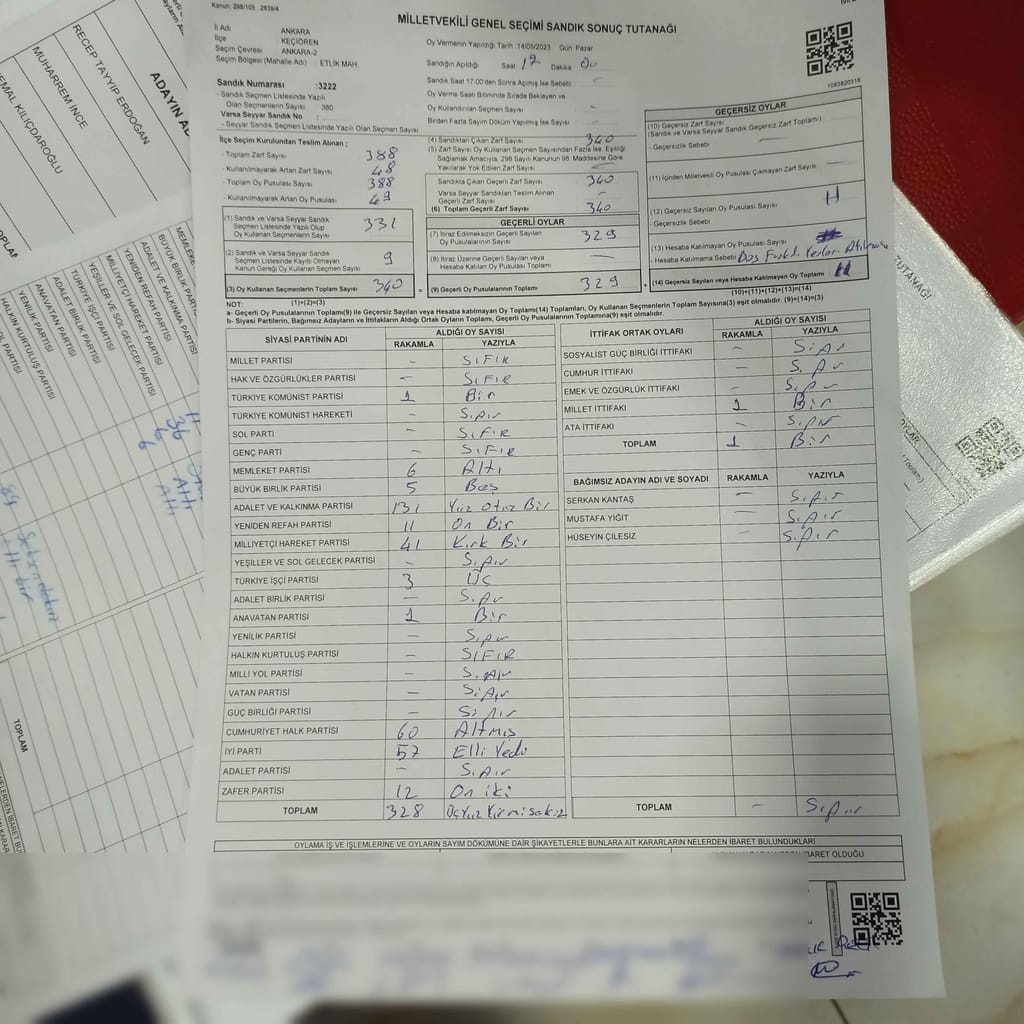 Kanun: 298/105 , 2839/4
MİLLETVEKİLİ GENEL SEÇİMİ SANDIK SONUÇ TUTANAĞI
İl Adı ANKARA
İlçe KEÇİÖREN
Seçim Çevresi ANKARA-2
Seçim Bölgesi (Mahalle Adı) ETLİK MAH
Oy Vermenin Yapıldığı Tarih :14/05/2023 Gün Pazar
Sandığın Açıldığı Saat 17 Dakika 00
Sandık Numarası :3222
- Sandık Seçmen Listesinde Yazılı
Olan Seçmenlerin Sayısı 380
Varsa Seyyar Sandık No
- Seyyar Sandık Seçmen Listesinde Yazılı Olan Seçmen Sayısı
Sandık Saat 17:00'den Sonra Açılmış İse Sebebi
Oy Verme Saati Bitiminde Sırada Bekleyen ve
Oy Kullandırılan Seçmen Sayısı –
Birden Fazla Sayım Döküm Yapılmış İse Sayısı –
1083820318
İlçe Seçim Kurulundan Teslim Alınan :
- Toplam Zarf Sayısı 388
- Kullanılmayarak Artan Zarf Sayısı 48
- Toplam Oy Pusulası Sayısı 388
- Kullanılmayarak Artan Oy Pusulası 49
(1) Sandık ve Varsa Seyyar Sandık
Seçmen Listesinde Yazılı Olup
Oy Kullanan Seçmenlerin Sayısı 331
(2) Sandık ve Varsa Seyyar Sandık
Seçmen Listesinde Kayıtlı Olmayan
Kanun Gereği Oy Kullanan Seçmen Sayısı 9
(3) Oy Kullanan Seçmenlerin Toplam Sayısı 340
(1)+(2)=(3)
(4) Sandıktan Çıkan Zarf Sayısı 340
(5) Zarf Sayısı Oy Kullanan Seçmen Sayısından Fazla İse, Eşitliği
Sağlamak Amacıyla, 298 Sayılı Kanunun 98. Maddesine Göre
Yakılarak Yok Edilen Zarf Sayısı –
Sandıkta Çıkan Geçerli Zarf Sayısı 340
Varsa Seyyar Sandıktan Teslim Alınan
Geçerli Zarf Sayısı –
(6) Toplam Geçerli Zarf Sayısı 340
GEÇERLİ OYLAR
(7) İtiraz Edilmeksizin Geçerli Sayılan
Oy Pusulalarının Sayısı 329
(8) İtiraz Üzerine Geçerli Sayılan veya
Hesaba Katılan Oy Pusulası Toplamı –
(9) Geçerli Oy Pusulalarının Toplamı 329
GEÇERSİZ OYLAR
(10) Geçersiz Zarf Sayısı
(Sandık ve Varsa Seyyar Sandık Geçersiz Zarf Toplamı)
- Geçersizlik Sebebi
(11) İçinden Milletvekili Oy Pusulası Çıkmayan Zarf Sayısı –
(12) Geçersiz Sayılan Oy Pusulası Sayısı 11
- Geçersizlik Sebebi
(13) Hesaba Katılmayan Oy Pusulası Sayısı
- Hesaba Katılmama Sebebi
(14) Geçersiz Sayılan veya Hesaba Katılmayan Oy Toplamı 11
(10)+(11)+(12)+(13)=(14)
NOT:
a- Geçerli Oy Pusulalarının Toplamı(9) ile Geçersiz Sayılan veya Hesaba katılmayan Oy Toplamı(14) Toplamları, Oy Kullanan Seçmenlerin Toplam Sayısına(3) eşit olmalıdır. (9)+(14)=(3)
b- Siyasi Partilerin, Bağımsız Adayların ve İttifakların Aldığı Ortak Oyların Toplamı, Geçerli Oy Pusulalarının Toplamına(9) eşit olmalıdır.
SİYASİ PARTİNİN ADI ALDIĞI OY SAYISI
RAKAMLA YAZIYLA
MİLLET PARTİSİ – SIFIR
HAK VE ÖZGÜRLÜKLER PARTİSİ – SIFIR
TÜRKİYE KOMÜNİST PARTİSİ 1 Bir
TÜRKİYE KOMÜNİST HAREKETİ – Sıfır
SOL PARTİ – SIFIR
GENÇ PARTİ – SIFIR
MEMLEKET PARTİSİ 6 Altı
BÜYÜK BİRLİK PARTİSİ 5 Beş
ADALET VE KALKINMA PARTİSİ 131 Yüz otuz Bir
YENİDEN REFAH PARTİSİ 11 On Bir
MİLLİYETÇİ HAREKET PARTİSİ 41 Kırk Bir
YEŞİLLER VE SOL GELECEK PARTİSİ – Sıfır
TÜRKİYE İŞÇİ PARTİSİ 3 Üç
ADALET BİRLİK PARTİSİ – Sıfır
ANAVATAN PARTİSİ 1 Bir
YENİLİK PARTİSİ – Sıfır
HALKIN KURTULUŞ PARTİSİ – SIFIR
MİLLİ YOL PARTİSİ – Sıfır
VATAN PARTİSİ – Sıfır
GÜÇ BİRLİĞİ PARTİSİ – Sıfır
CUMHURİYET HALK PARTİSİ 60 Altmış
İYİ PARTİ 57 Elli Yedi
ADALET PARTİSİ – Sıfır
ZAFER PARTİSİ 12 On iki
TOPLAM 328 Üçyüz Yirmisekiz
İTTİFAK ORTAK OYLARI ALDIĞI OY SAYISI
RAKAMLA YAZIYLA
SOSYALİST GÜÇ BİRLİĞİ İTTİFAKI – Sıfır
CUMHUR İTTİFAKI – Sıfır
EMEK VE ÖZGÜRLÜK İTTİFAKI – Sıfır
MİLLET İTTİFAKI 1 Bir
ATA İTTİFAKI – Sıfır
TOPLAM 1 Bir
BAĞIMSIZ ADAYIN ADI VE SOYADI RAKAMLA YAZIYLA
SERKAN KANTAŞ – Sıfır
MUSTAFA YİĞİT – Sıfır
HÜSEYİN ÇİLESİZ – Sıfır
TOPLAM – Sıfır
OYLAMA İŞ VE İŞLEMLERİNE VE OYLARIN SAYIM DÖKÜMÜNE DAİR ŞİKAYETLERLE BUNLARA AİT KARARLARIN NELERDEN İBARET BULUNDUKLARI
BARET OLDUĞU
ADAYIN
RECEP TAYYİP ERDOĞAN
MUHARREM İNCE
EMAL KILIÇDAROĞLU
OPLAM
MEMLEKE
BÜYÜK BİRLİK PARTİ
ADALET VE KALKINMA PARTİSİ
YENİDEN REFAH PARTİSİ
MİLLİYETÇİ HAREKET PARTİSİ
YEŞİLLER VE SOL GELECEK PARTİSİ
TÜRKİYE İŞÇİ PARTİSİ
ADALET BİRLİK PARTİSİ
ANAVATAN PARTİSİ
YENİLİK PARTİSİ
HALKIN KURTULUŞ PARTİSİ
OL PARTİSİ
TOPLAM
TUTANAĞI
OYLAR